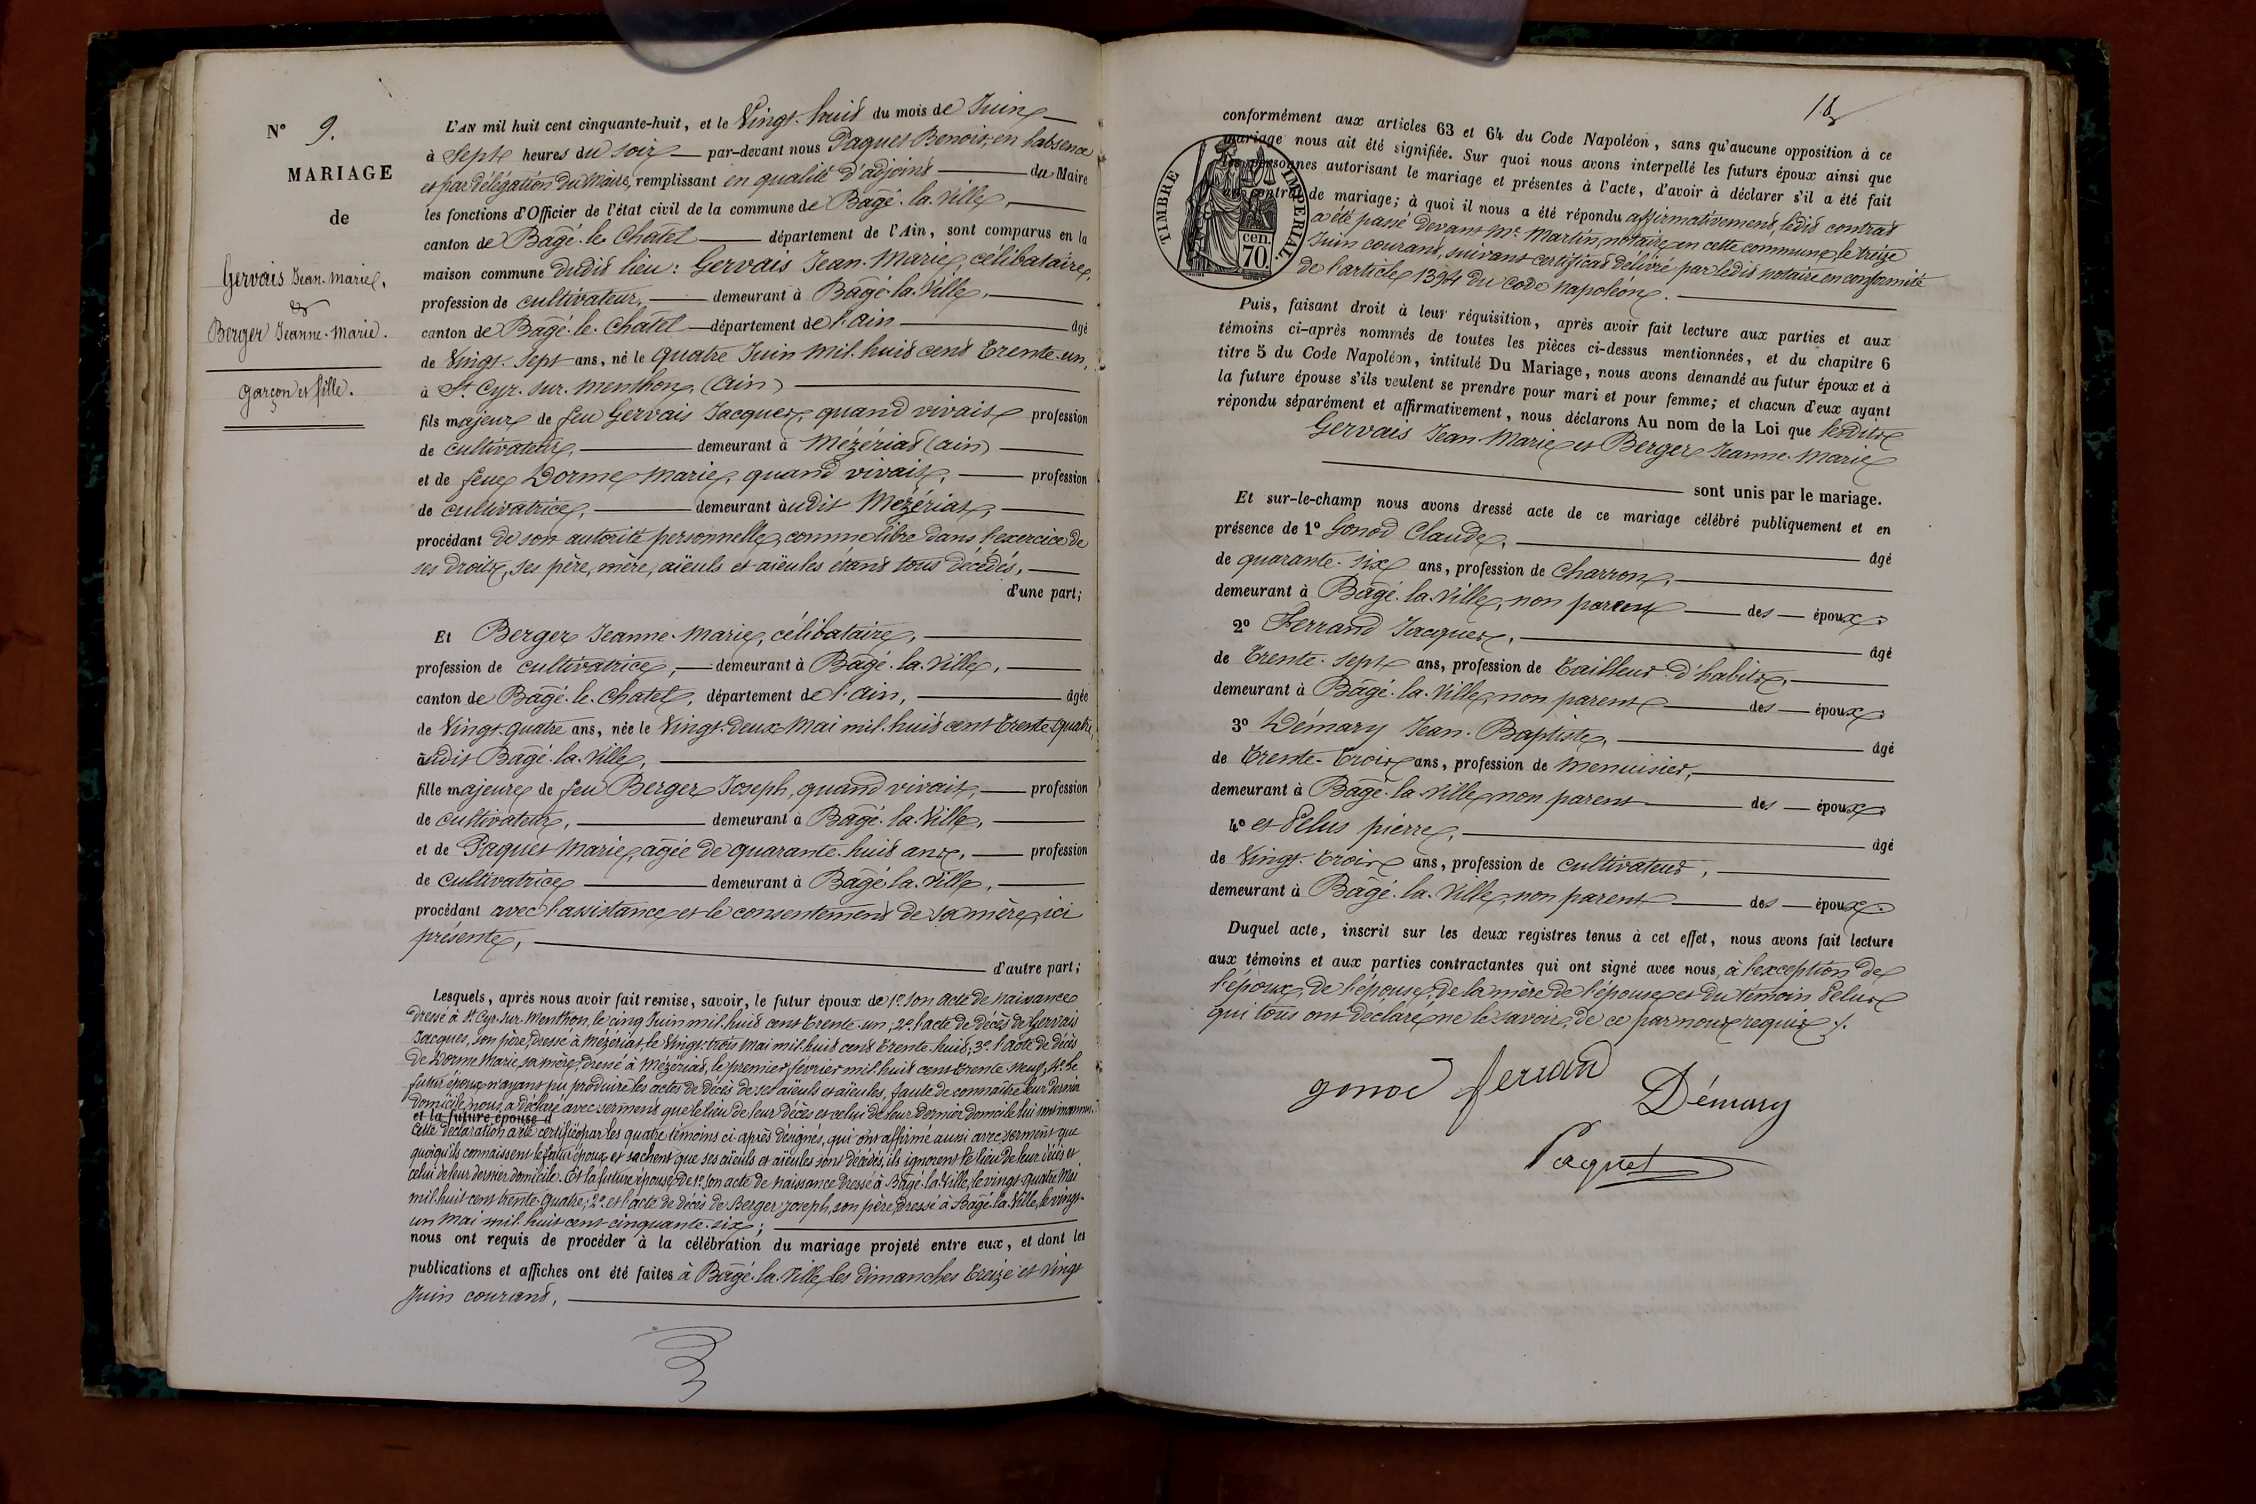 N° 9.
MARIAGE
de
Gervais Jean-Marie,
&
Berger Jeanne-Marie.
garçon et fille.
L'AN mil huit cent cinquante-huit, et le Vingt-huit du mois de Juin
à Sept heures du soir par-devant nous Paquet Benoit, en l'absence
et par délégation du Maire, remplissant en qualité d'adjoint du Maire
les fonctions d'Officier de l'état civil de la commune de Bâgé-la-Ville,
canton de Bâgé-le-Châtel département de l'Ain, sont comparus en la
maison commune dudit lieu: Gervais Jean-Marie, célibataire,
profession de cultivateur, demeurant à Bâgé-la-Ville,
canton de Bâgé-le-Châtel département de l'ain âgé
de Vingt-sept ans, né le quatre Juin mil-huit cent Trente-un,
à St Cyr-sur-Menthon, (ain)
fils majeur de feu Gervais Jacques, quand vivait profession
de cultivateur, demeurant à Mézériat (ain)
et de feue Dorme Marie, quand vivait, profession
de cultivatrice, demeurant àudit Mézériat,
procédant de son autorité personnelle, comme libre dans l'exercice de
ses droits, ses père, mère, aïeuls et aïeules étant tous décédés,
d'une part;
Et Berger Jeanne-Marie, célibataire,
profession de cultivatrice, demeurant à Bâgé-la-Ville,
canton de Bâgé-le-Châtel, département de l'ain, âgée
de Vingt-quatre ans, née le Vingt-deux Mai mil-huit cent Trente-quatre,
àudit Bâgé-la-Ville,
fille majeure de feu Berger Joseph, quand vivait, profession
de cultivateur, demeurant à Bâgé-la-Ville,
et de Paquet Marie, agée de quarante-huit ans, profession
de cultivatrice demeurant à Bâgé-la-Ville,
procédant avec l'assistance et le consentement de sa mère, ici
présente,
d'autre part;
Lesquels, après nous avoir fait remise, savoir, le futur époux de 1° son acte de naissance
dressé à St Cyr-sur-Menthon, le cinq Juin mil-huit cent trente-un; 2° l'acte de décès de Gervais
Jacques, son père, dressé à Mézériat, le Vingt-trois Mai mil-huit cent trente-huit; 3° l'acte de décès
de Dorme Marie sa mère, dressé à Mézériat, le premier février mil-huit cent trente-neuf; 4° le
futur époux n'ayant pu produire les actes de décès de ses aïeuls et aïeules, faute de connaître leur dernier
domicile, nous a déclaré avec serment que le lieu de leur décès et celui de leur dernier domicile lui sont inconnus.
et la future épouse d
Cette déclaration a été certifiée par les quatre témoins ci-après désignés, qui ont affirmé aussi avec serment que
quoiqu'ils connaissent le futur époux et sachent que ses aïeuls et aïeules sont décédés, ils ignorent le lieu de leur décès et
celui de leur dernier domicile. Et la future épouse de 1° son acte de naissance dressé à Bâgé-la-Ville, le vingt-quatre Mai
mil-huit cent trente-quatre; 2° et l'acte de décès de Berger Joseph, son père, dressé à Bâgé-la-Ville, le vingt-
un Mai mil-huit cent cinquante-six;
nous ont requis de procéder à la célébration du mariage projeté entre eux, et dont les
publications et affiches ont été faites à Bâgé-la-Ville, les dimanches treize et vingt
Juin courant,
conformément aux articles 63 et 64 du Code Napoléon, sans qu'aucune opposition à ce
mariage nous ait été signifiée. Sur quoi nous avons interpellé les futurs époux ainsi que
les personnes autorisant le mariage et présentes à l'acte, d'avoir à déclarer s'il a été fait
un contrat de mariage; à quoi il nous a été répondu affirmativement, ledit contrat
a été passé devant Me Martin, notaire en cette commune, le treize
Juin courant, suivant certificat délivré par ledit notaire en conformité
de l'article 1394 du Code Napoléon.
TIMBRE IMPERIAL
70 cen.
Puis, faisant droit à leur réquisition, après avoir fait lecture aux parties et aux
témoins ci-après nommés de toutes les pièces ci-dessus mentionnées, et du chapitre 6
titre 5 du Code Napoléon, intitulé Du Mariage, nous avons demandé au futur époux et à
la future épouse s'ils veulent se prendre pour mari et pour femme; et chacun d'eux ayant
répondu séparément et affirmativement, nous déclarons Au nom de la Loi que lesdits
Gervais Jean-Marie et Berger Jeanne-Marie
sont unis par le mariage.
Et sur-le-champ nous avons dressé acte de ce mariage célébré publiquement et en
présence de 1° Gonod Claude, âgé
de quarante-six ans, profession de Charron,
demeurant à Bâgé-la-Ville, non parent des époux.
2° Ferrand Jacques, âgé
de Trente-sept ans, profession de Tailleur-d'habits,
demeurant à Bâgé-la-Ville, non parent des époux.
3° Démary Jean-Baptiste, âgé
de Trente-Trois ans, profession de menuisier,
demeurant à Bâgé-la-Ville, non parent des époux.
4° et Pelus pierre, âgé
de Vingt-trois ans, profession de cultivateur,
demeurant à Bâgé-la-Ville, non parent des époux.
Duquel acte, inscrit sur les deux registres tenus à cet effet, nous avons fait lecture
aux témoins et aux parties contractantes qui ont signé avec nous, à l'exception de
l'époux, de l'épouse, de la mère de l'épouse et du témoin Pelus
qui tous ont déclaré ne le savoir, de ce par nous requis.
gonod ferrand
Démary
Paquet